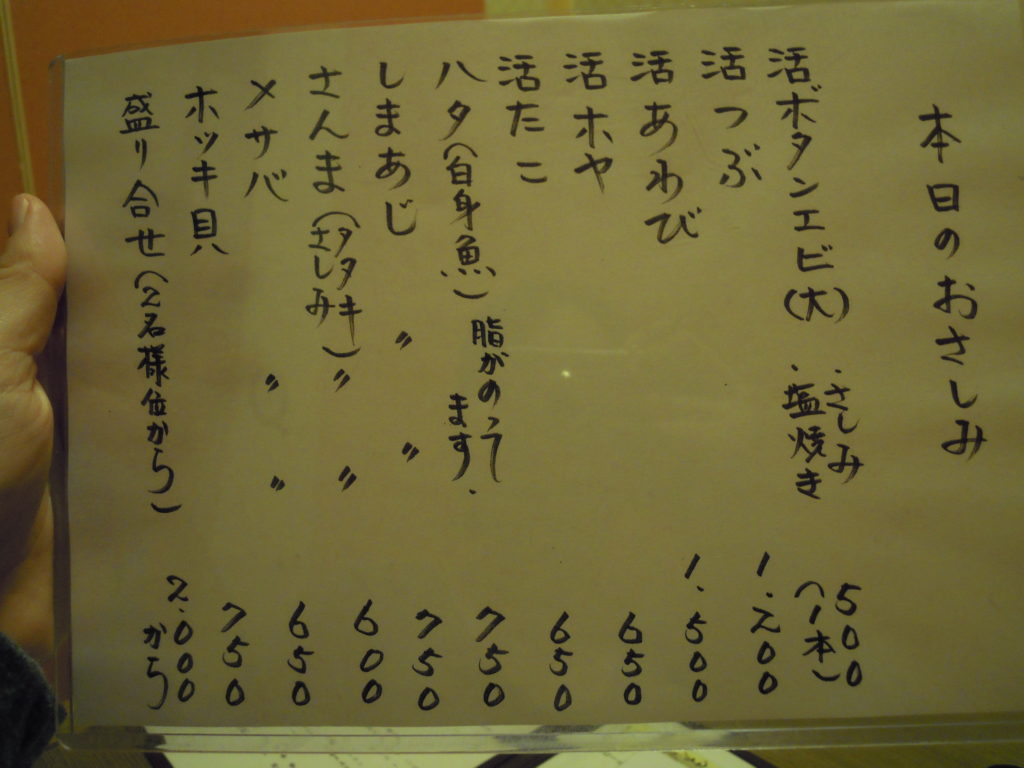 本日のおさしみ
活ボタンエビ(大) ・さしみ ・塩焼き 500 (1本)
活つぶ 1.200
活あわび 1.500
活ホヤ 650
活たこ 650
ハタ(白身魚) 脂がのってます. 750
しまあじ 〃 〃 750
さんま(タタキ さしみ) 〃 〃 600
〆サバ 〃 〃 650
ホッキ貝 750
盛り合せ(2名様位から) 2.000から